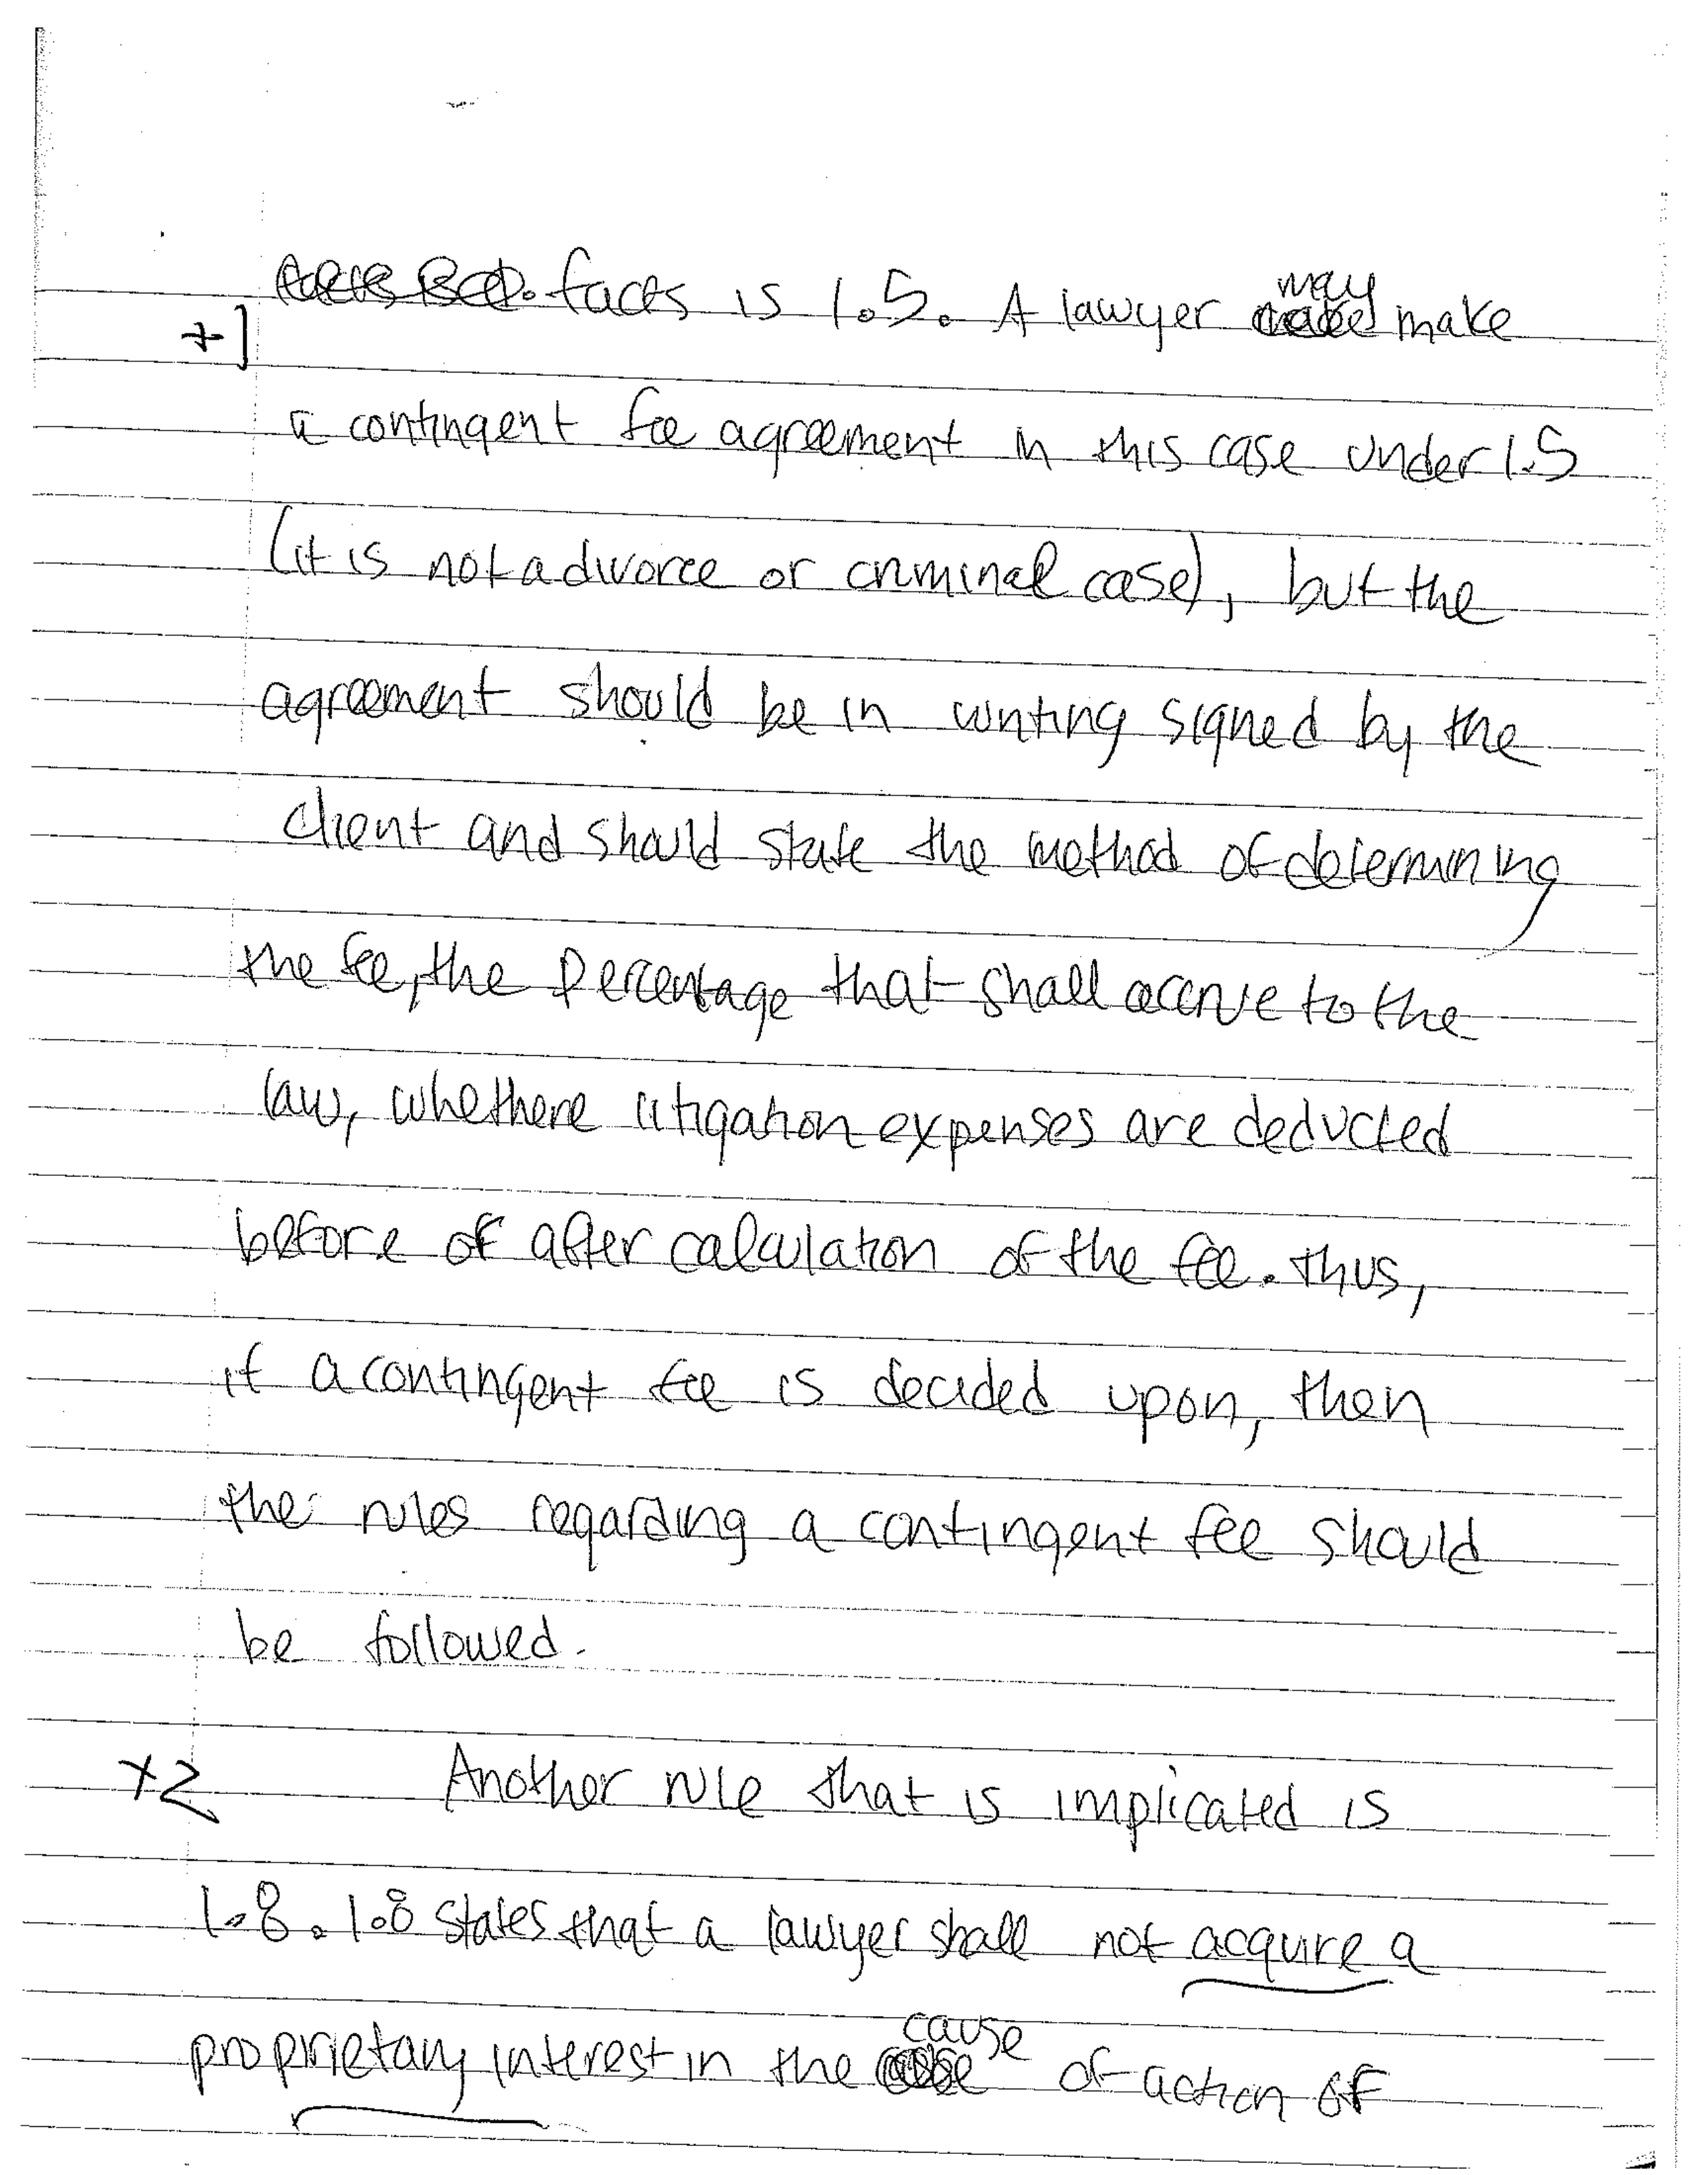 faces is 1.5. A lawyer may make
+1
a contingent fee agreement in this case under 1.5
(it is not a divorce or criminal case), but the
agreement should be in writing signed by the
client and should state the method of determining
the fee, the percentage that shall accrue to the
law, whethere litigation expenses are deducted
before of after calculation of the fee. Thus,
if a contingent fee is decided upon, then
the rules regarding a contingent fee should
be followed.
+2 Another rule that is implicated is
1.8. 1.8 states that a lawyer shall not acquire a
proprietary interest in the cause of action of